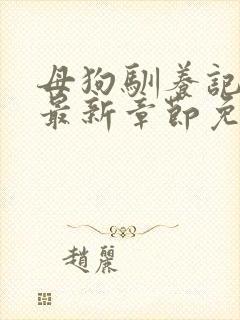 母狗馴養記
最新章節免
趙麗